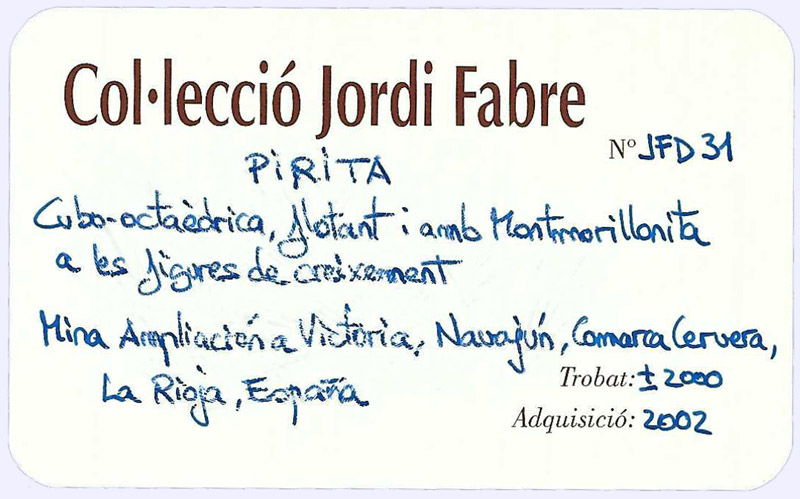 Col·lecció Jordi Fabre
Nº JFD 31
PiRiTA
Cubo-octaèdrica, flotant i amb Montmorillonita
a les figures de creixement
Mina Ampliación a Victoria, Navajún, Comarca Cervera,
La Rioja, España
Trobat: ± 2000
Adquisició: 2002